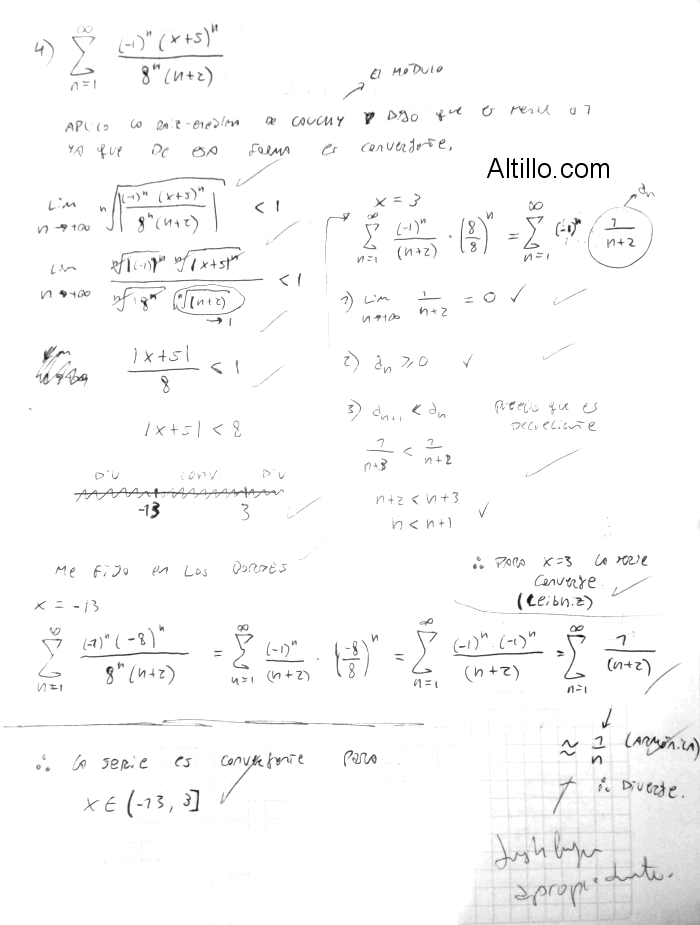 4) ∞ ∑ n=1 (-1)^n (x+5)^n / 8^n (n+2)
El MÓDULO
APLICO DE CAUCHY y DIGO que es
YA que De esa forma es convergente.
Altillo.com
Lim n→+∞ n√|(-1)^n (x+5)^n / 8^n (n+2)| < 1
Lim n→+∞ n√|(-1)^n| n√|x+5|^n / n√|8^n| n√|(n+2)| < 1
→1
|x+5| / 8 < 1
|x+5| < 8
DIV CONV DIV
-13 3
x = 3
∞ ∑ n=1 (-1)^n / (n+2) · (8/8)^n = ∞ ∑ n=1 (-1)^n 1 / n+2
an
1) Lim n→+∞ 1 / n+2 = 0 ✓
2) an ≥ 0 ✓
3) an+1 < an que es
decreciente
1 / n+3 < 1 / n+2
n+2 < n+3
n < n+1 ✓
∴ PARA x=3 la serie
converge.
(Leibniz)
Me fijo en Los BORDES
x = -13
∞ ∑ n=1 (-1)^n (-8)^n / 8^n (n+2) = ∞ ∑ n=1 (-1)^n / (n+2) · (-8/8)^n = ∞ ∑ n=1 (-1)^n · (-1)^n / (n+2) = ∞ ∑ n=1 1 / (n+2)
≈ 1/n (ARMÓNICA)
∴ DIVERGE.
∴ la serie es convergente PARA
x ∈ (-13, 3]